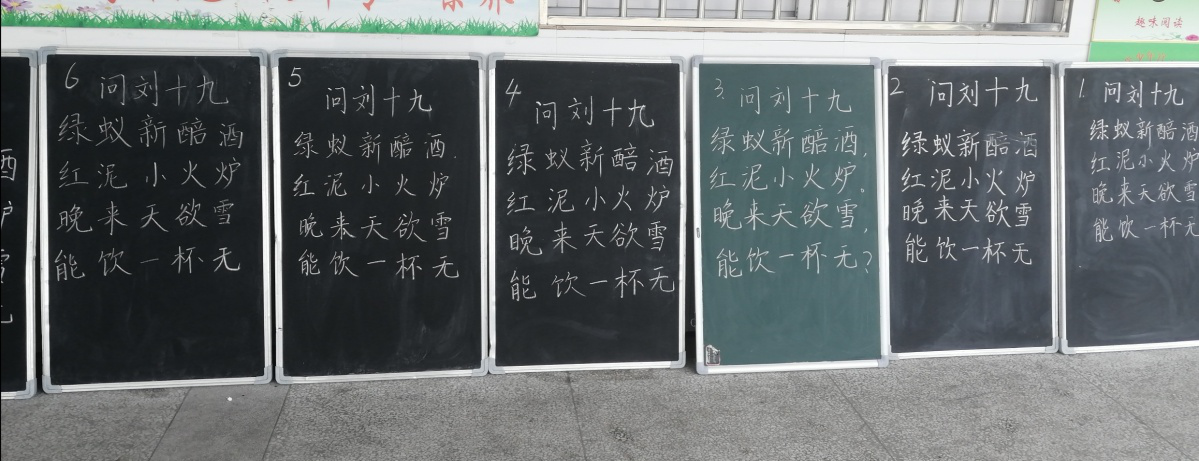 趣味阅读
酒
6 问刘十九
绿蚁新醅酒
红泥小火炉
晚来天欲雪
能饮一杯无
5 问刘十九
绿蚁新醅酒.
红泥小火炉
晚来天欲雪
能饮一杯无
4 问刘十九
绿蚁新醅酒
红泥小火炉
晚来天欲雪
能饮一杯无
3. 问刘十九
绿蚁新醅酒,
红泥小火炉。
晚来天欲雪,
能饮一杯无?
2 问刘十九
绿蚁新醅酒
红泥小火炉
晚来天欲雪
能饮一杯无
1. 问刘十九
绿蚁新醅酒
红泥小火炉
晚来天欲雪
能饮一杯无